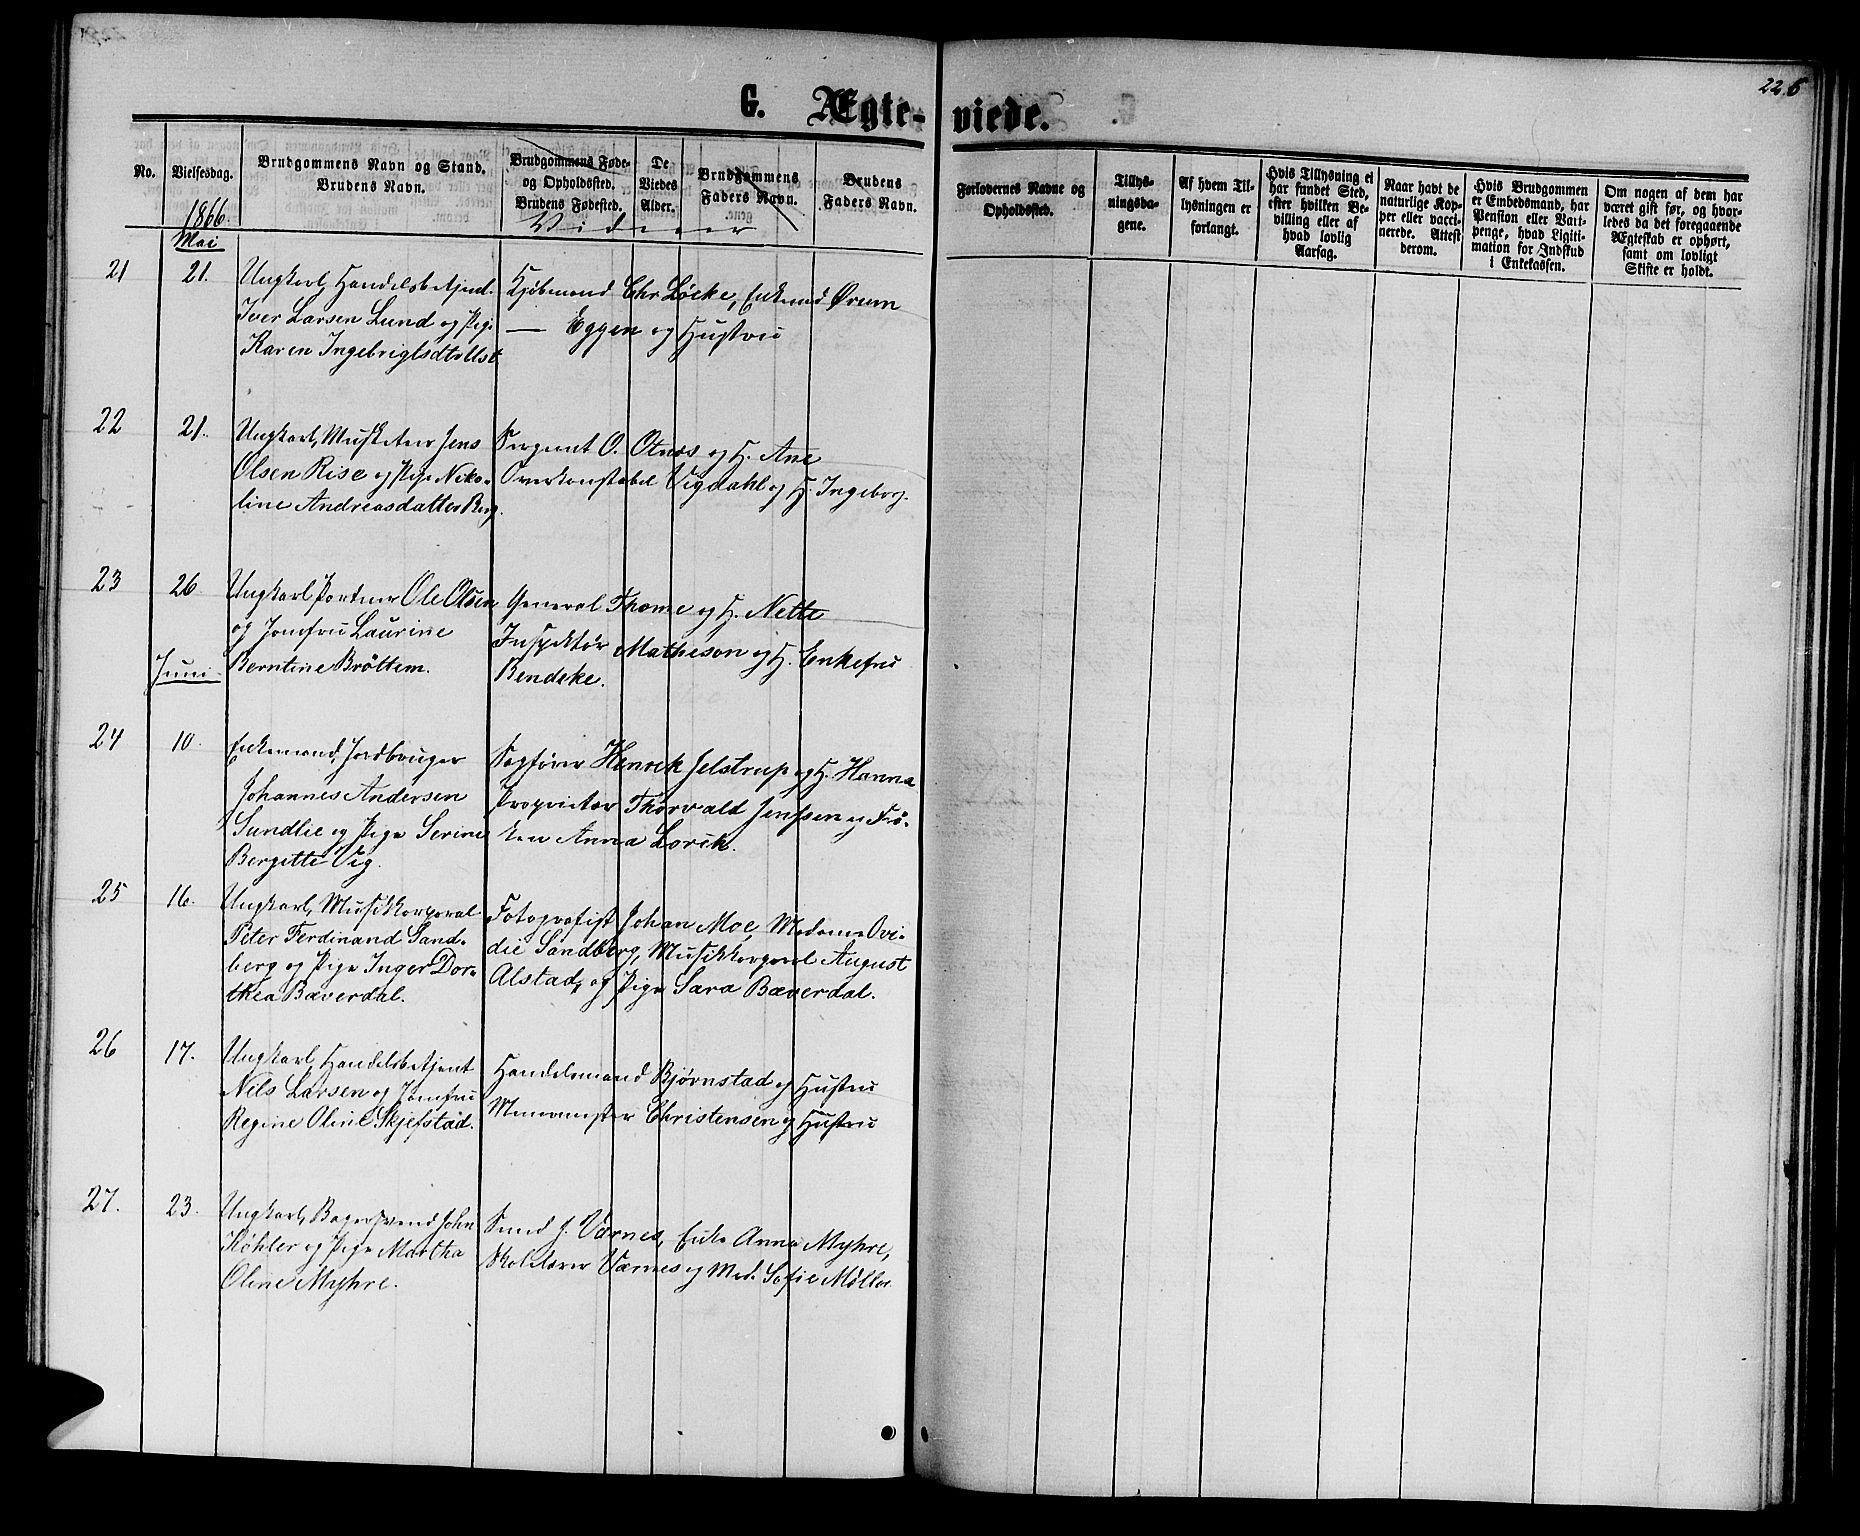 226
G. Ægte-viede.
No.
Vielsesdag.
Brudgommens Navn og Stand.
Brudens Navn.
Brudgommens Føde-
og Opholdssted.
Brudens Fødested.
De
Viedes
Alder.
Brudgommens
Faders Navn.
Brudens
Faders Navn.
Forlovernes Navne og
Opholdssted.
Tillys-
ningsda-
gene.
Af hvem Til-
lysningen er
forlangt.
Hvis Tillysning ei
har fundet Sted,
efter hvilken Be-
villing eller af
hvad lovlig
Aarsag.
Naar havt de
naturlige Kop-
per eller vacci-
nerede. Attest
derom.
Hvis Brudgommen
er Embedsmand, har
Pension eller Vart-
penge, hvad Ligiti-
mation for Indskud
i Enkekassen.
Om nogen af dem har
været gift før, og hvor-
ledes da det foregaaende
Ægteskab er ophørt,
samt om lovligt
Skifte er holdt.
1866.
Vidner
Mai
21 21. Ungkarl, Handelsbetjent
Iver Larsen Lund og Pige
Karen Ingebrigtsdtr
Kjøbmand Chr Löcke, Enkemd Örum
— Eggen og Hustru
22 21. Ungkarl, Musketeer Jens
Olsen Rise og Pige Niko-
line Andreasdatter Berg.
Sergeant O. Otnes og H. Ane
Overkonstabel Vigdahl og H. Ingeborg.
23 26 Ungkarl, Portner Ole Olsen
og Jomfru Laurine
Berntine Bröttem.
General Thome og H. Nette
Inspektör Matheson og H. Enkefru
Bendeke.
Juni
24 10. Enkemand, Jordbruger
Johannes Andersen
Sundlie og Pige Serine
Bergitte Vig.
Sagfører Henrik Jelstrup og H. Hanna
Proprietær Thorvald Jenssen og Frö-
ken Anna Lorck.
25 16. Ungkarl, Musikkorporal
Peter Ferdinand Sand-
berg og Pige Inger Doro-
thea Bæverdal.
Fotografist Johan Moe, Madame Ovi-
die Sandberg, Musikkorporal August
Alstad, og Pige Sara Bæverdal.
26 17. Ungkarl, Handelsbetjent
Nils Larsen og Jomfru
Regine Oline Skjefstad.
Handelsmand Bjørnstad og Hustru
Murmester Christensen og Hustru
27. 23. Ungkarl, Bagersvend John
Köhler og Pige Martha
Oline Myhre.
J. Værnes, Enke Anna Myhre,
Skolelærer Værnes og Mad. Sofie Möller